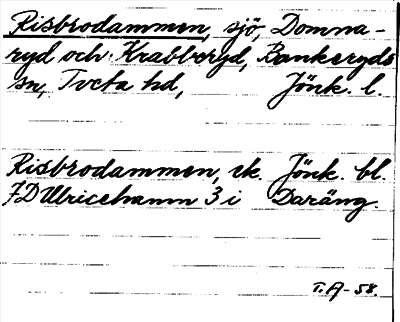 Risbrodammen, sjö, Domna-
ryd och Krabberyd, Bankeryds
sn, Tveta hd, Jönk. l.
Risbrodammen, ek. Jönk. bl.
7D Ulricehamn 3 i Daräng.
T. A-58.